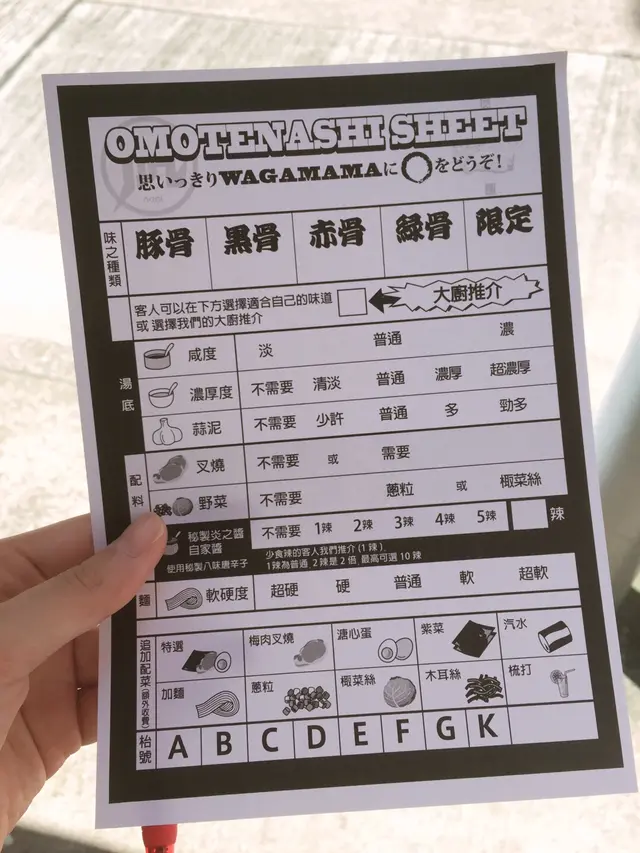 OMOTENASHI SHEET
思いっきりWAGAMAMAに〇をどうぞ!
味之種類
豚骨 黒骨 赤骨 緑骨 限定
客人可以在下方選擇適合自己的味道
或 選擇我們的大廚推介
大廚推介
湯底
咸度 淡 普通 濃
濃厚度 不需要 清淡 普通 濃厚 超濃厚
蒜泥 不需要 少許 普通 多 勁多
配料
叉燒 不需要 或 需要
野菜 不需要 蔥粒 或 椰菜絲
秘製炎之醬
自家醬
使用秘製八味唐辛子
不需要 1辣 2辣 3辣 4辣 5辣 辣
少食辣的客人我們推介(1辣).
1辣為普通 2辣是2倍 最高可選10辣
麵
軟硬度 超硬 硬 普通 軟 超軟
追加配菜(額外收費)
特選 梅肉叉燒 溏心蛋 紫菜 汽水
加麵 蔥粒 椰菜絲 木耳絲 梳打
枱號
A B C D E F G K